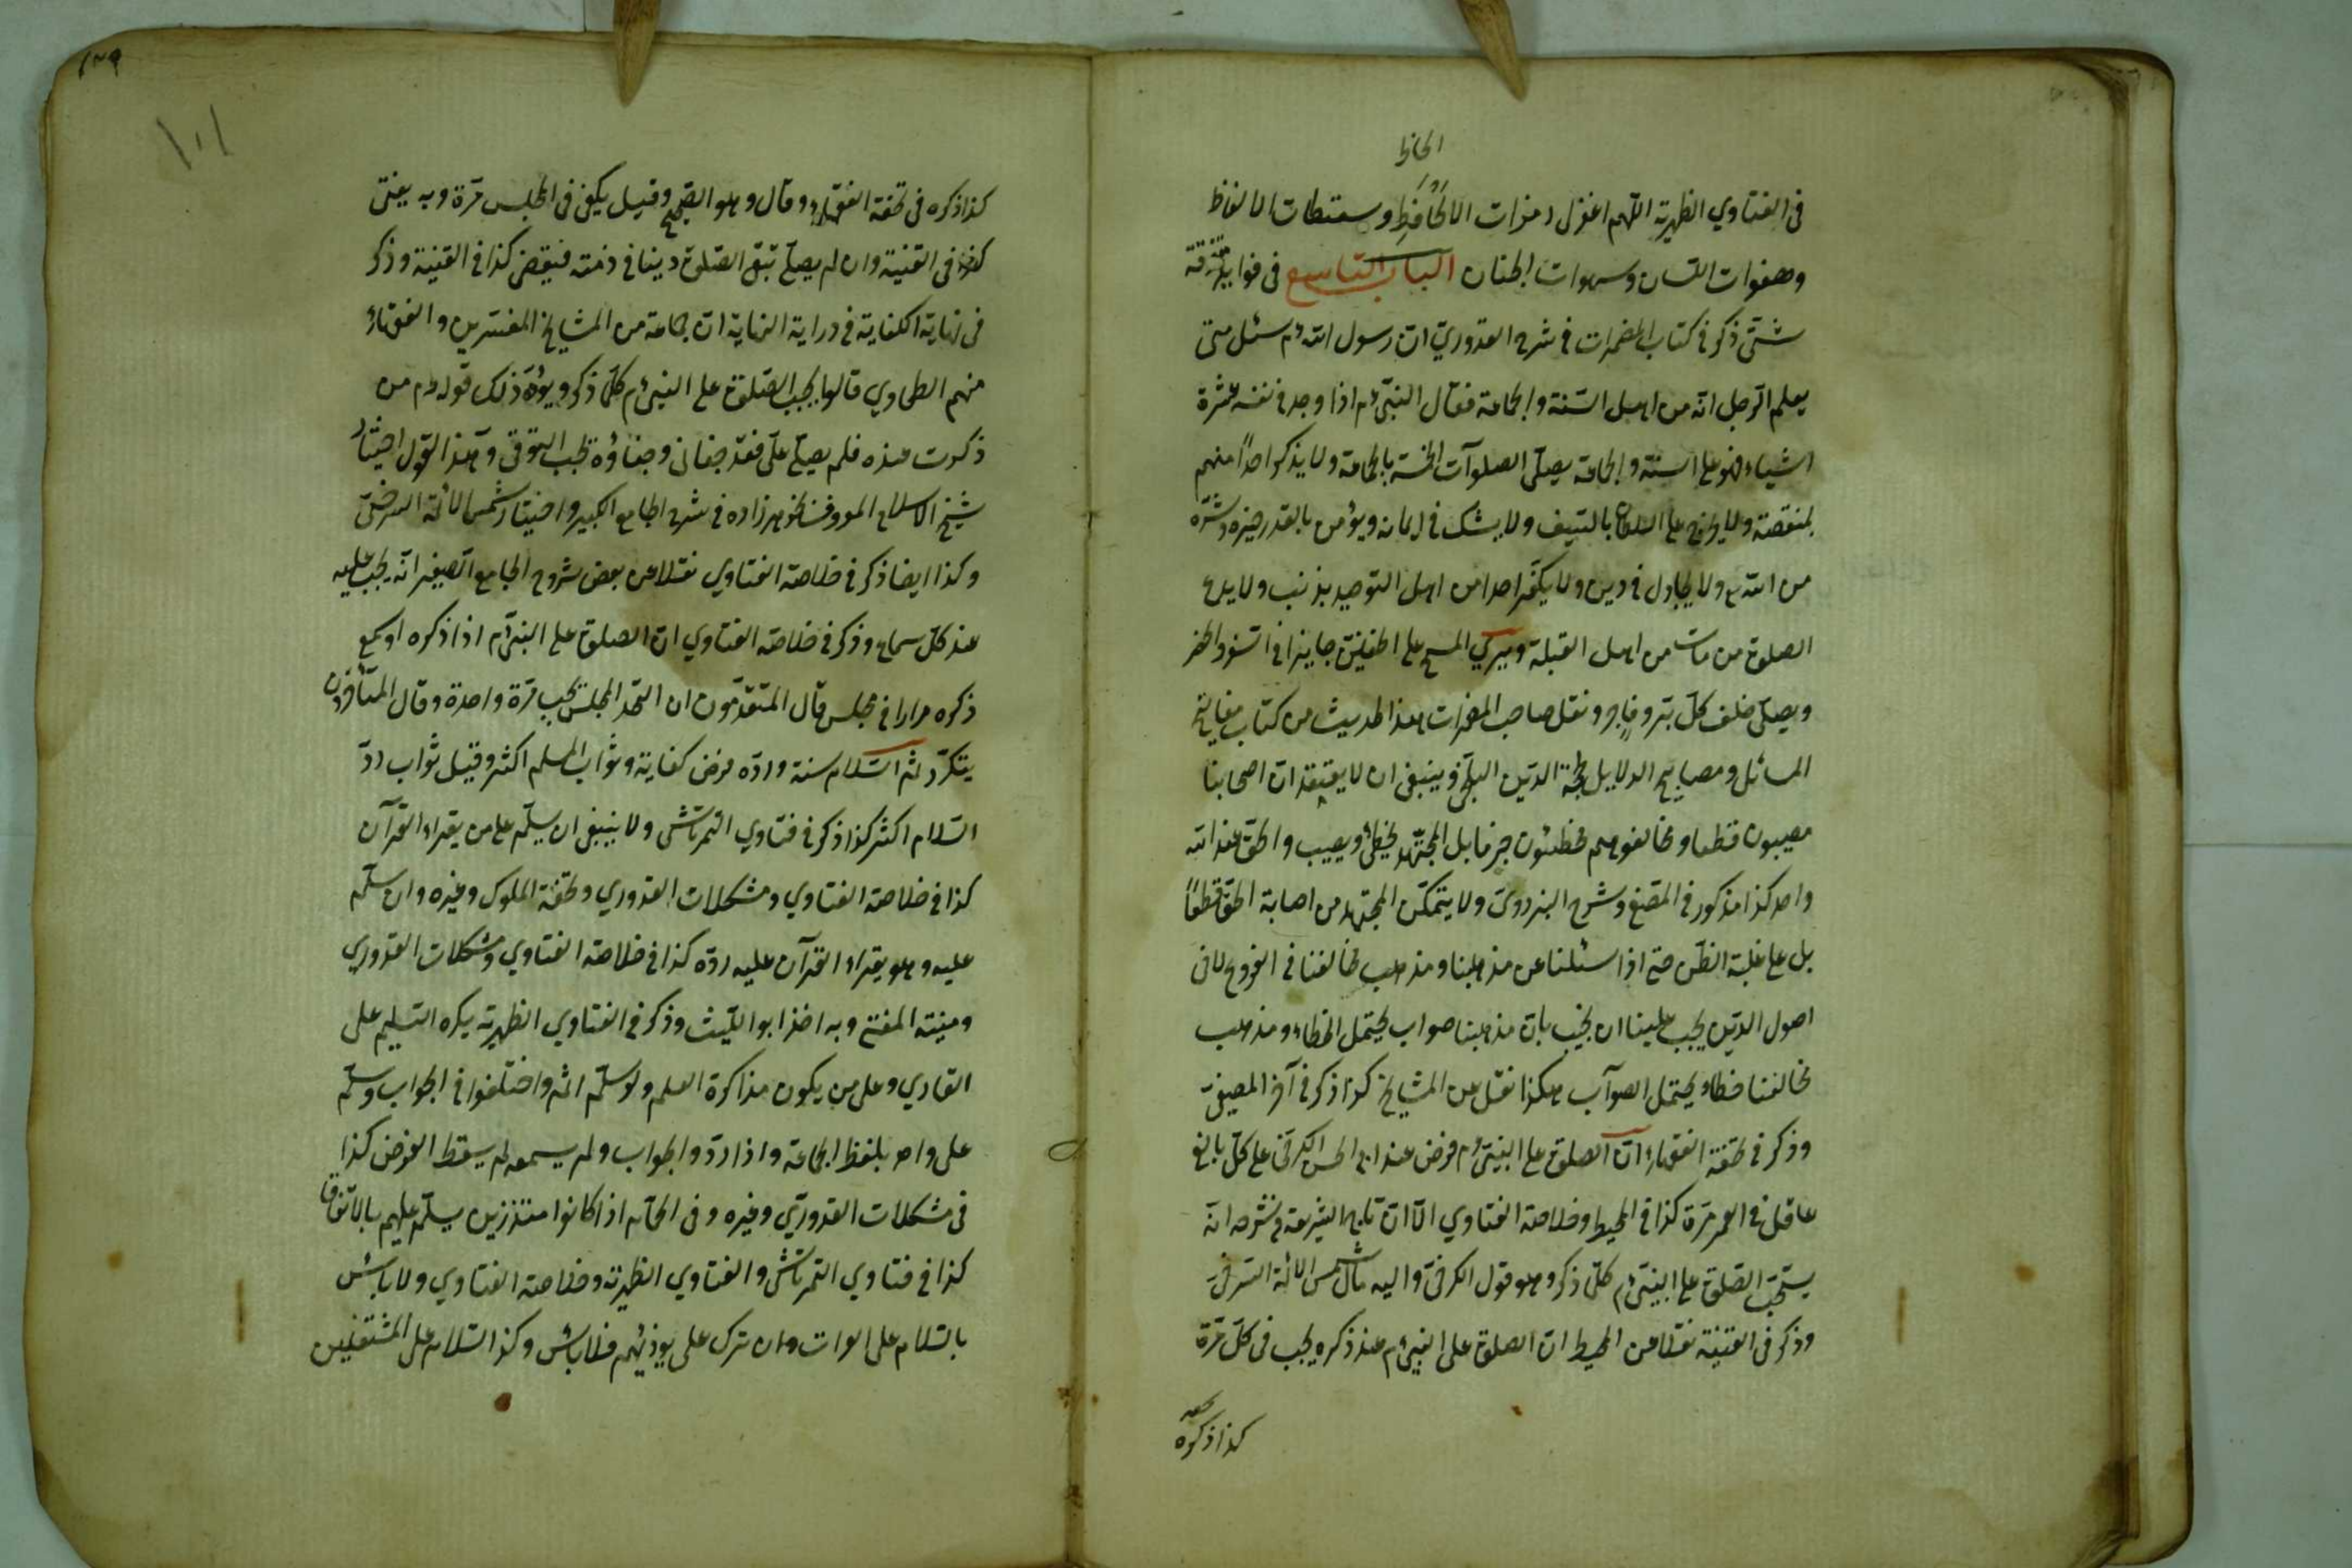 الحاظ
فى الفتاوي الظهيرية اللهم اغفرلى رمزات الالحاظ وسقطات الالفاظ
وهفوات اللسان وسهوات الجنان الباب التاسع فى فوايد متفرقة
شتى ذكر فى كتاب المضمرات فى شرح القدوري ان رسول الله ءم سئل متى
يعلم الرجل انه من اهل السنة والجماعة فقال النبى ءم اذا وجد فى نفسه عشرة
اشياء فهو على السنة والجماعة يصلى الصلوات الخمسة بالجماعة ولا يذكر احدا منهم
بمنقصة ولا يخرج على السلطان بالسيف ولا يشك فى ايمانه ويؤمن بالقدر خيره وشره
من الله تع ولا يجادل فى دين ولا يكفر احدا من اهل التوحيد بذنب ولا يدع
الصلوة من مات من اهل القبلة ويري المسح على الخفين جايزا فى السفر والحضر
ويصلى خلف كل بر وفاجر ونقل صاحب المضمرات هذا الحديث من كتاب مفاتيح
المسائل ومصابيح الدلايل لحجة الدين البلخى وينبغى ان لا يعتقد ان اصحابنا
مصيبون قطعا ومخالفوهم مخطئون جزما بل المجتهد يخطئ ويصيب والحق عند الله
واحد كذا مذكور فى المصفى وشرح البزدوى ولا يتمكن المجتهد من اصابة الحق قطعًا
بل على غلبة الظن حتى اذا سئلنا عن مذهبنا ومذهب مخالفنا فى الفروع لا فى
اصول الدين يجب علينا ان نجيب بان مذهبنا صواب يحتمل الخطاء ومذهب
مخالفنا خطاء يحتمل الصواب هكذا نقل عن المشايخ كذا ذكر فى آخر المصفى
وذكر فى تحفة الفقهاء ان الصلوة على النبى ءم فرض عند ابى الحسن الكرخى على كل بالغ
عاقل فى العمر مرة كذا فى المحيط وخلاصة الفتاوي الا ان تاج الشريعة فى شرحه انه
يستحب الصلوة على النبى ءم كل ذكر وهو قول الكرخى واليه مال شمس الائمة السرخسى
وذكر فى القنية نقلا عن المحيط ان الصلوة على النبى ءم عند ذكره يجب فى كل مرة
كذا ذكره
١٠١
كذا ذكره فى تحفة الفقهاء وقال وهو الصحيح وقيل يكفى فى المجلس مرة وبه يفتى
كذا فى القنية وان لم يصل تبقى الصلوة دينا فى ذمته فيقضى كذا فى القنية وذكر
فى نهاية الكفاية فى دراية الهداية ان جماعة من المشايخ المفسرين والفقهاء
منهم الطحاوي قالوا يجب الصلوة على النبى ءم كلما ذكر ويؤيد ذلك قوله ءم من
ذكرت عنده فلم يصل على فقد جفانى وجفاؤه تجب التوقى وهذا القول اختيار
شيخ الاسلام المعروف بخواهرزاده فى شرح الجامع الكبير واختيار شمس الائمة السرخسى
وكذا ايضا ذكر فى خلاصة الفتاوي نقلا عن بعض شروح الجامع الصغير انه يجب عليه
عند كل سماع وذكر فى خلاصة الفتاوي ان الصلوة على النبى ءم اذا ذكره او سمع
ذكره مرارا فى مجلس قال المتقدمون ان اتحد المجلس يجب مرة واحدة وقال المتأخرون
يتكرر ثم السلام سنة ورده فرض كفاية وثواب المسلم اكثر وقيل ثواب رد
السلام اكثر كذا ذكر فى فتاوي التمرتاشى ولا ينبغى ان يسلم على من يقراء القرآن
كذا فى خلاصة الفتاوي ومشكلات القدوري وتحفة الملوك وغيره وان سلم
عليه وهو يقراء القرآن عليه رده كذا فى خلاصة الفتاوي ومشكلات القدوري
ومنية المفتى وبه اخذ ابو الليث وذكر فى الفتاوي الظهيرية يكره التسليم على
القاري وعلى من يكون مذاكرة العلم ولو سلم اثم واختلفوا فى الجواب وسلم
على واحد بلفظ الجماعة واذا ردوا الجواب ولم يسمعه لم يسقط الفرض كذا
فى مشكلات القدوري وغيره وفى الحمام اذا كانوا متزرين يسلم عليهم بالاتفاق
كذا فى فتاوي التمرتاشى والفتاوي الظهيرية وخلاصة الفتاوي ولا باس
بالسلام على وان ترك على فلا باس وكذا السلام على المشتغلين